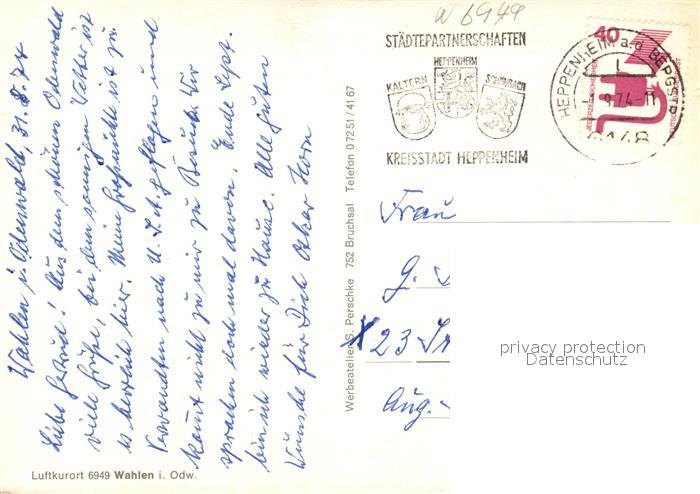 Wahlen i. Odenwald, 31.8.74
Liebe Gertrud! Aus dem schönen Odenwald
viele Grüße, bei dem sonnigen Wetter ist
es herrlich hier. Meine ist zu
Verwandten nach U.S.A. geflogen und
kannst nicht zu mir zu Besuch. Wir
sprachen doch mal davon. Ende Sept.
bin ich wieder zu Hause. Alle guten
Wünsche für Dich Oskar Horn
Luftkurort 6949 Wahlen i. Odw.
Werbeatelier S. Perschke 752 Bruchsal Telefon 0 72 51 / 41 67
W 6949
STÄDTEPARTNERSCHAFTEN
HEPPENHEIM
KALTERN
KREISSTADT HEPPENHEIM
40
JEDERZEIT SICHERHEIT
HEPPENHEIM a.d. BERGSTR
9.74-11
6148
Frau
G.
X 23
Aug.-
privacy protection
Datenschutz